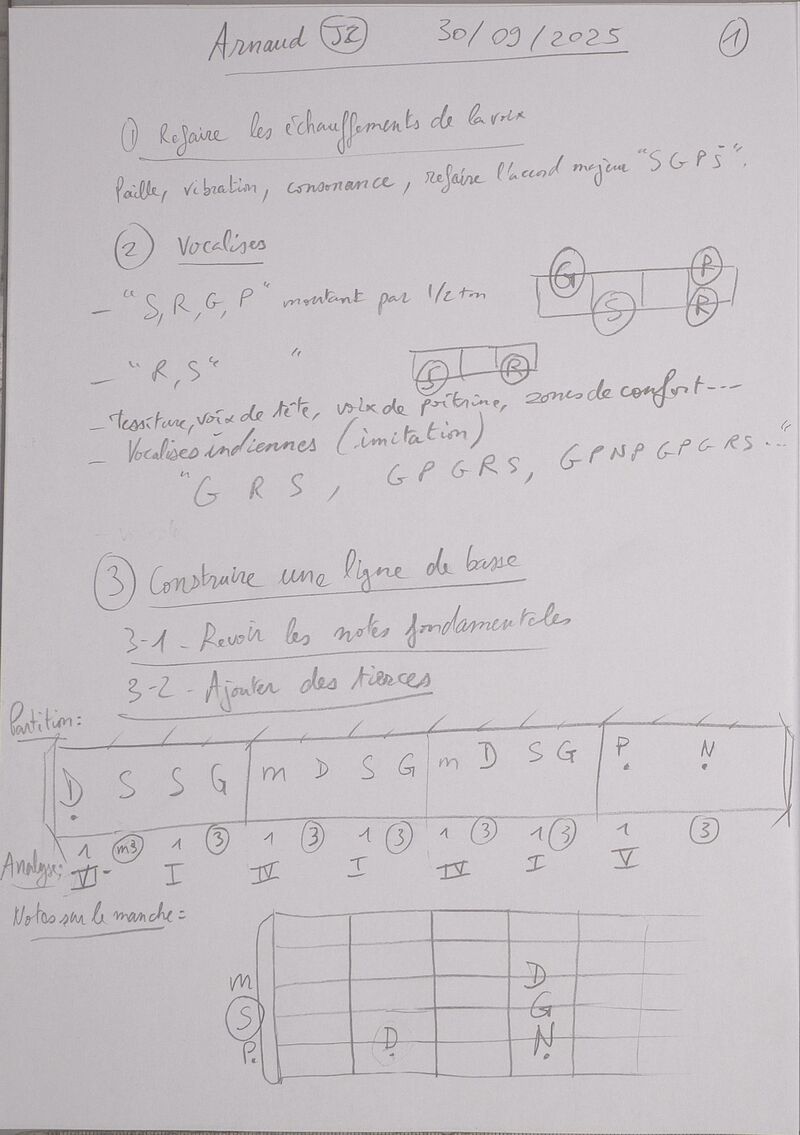 Arnaud J2 30/09/2025 1
1 Refaire les échauffements de la voix
Paille, vibration, consonance, refaire l'accord majeur "S G P Ṡ".
2 Vocalises
- "S, R, G, P" montant par 1/2 ton
G P
S R
- "R, S" "
S R
- Tessiture, voix de tête, voix de poitrine, zones de confort---
- Vocalises indiennes (imitation)
"G R S, G P G R S, G P N P G P G R S..."
3 Construire une ligne de basse
3-1 - Revoir les notes fondamentales
3-2 - Ajouter des tierces
Partition:
Ḍ S S G m D S G m D S G Ṗ Ṇ
1 m3 1 3 1 3 1 3 1 3 1 3 1 3
Analyse: VI- I IV I IV I V
Notes sur le manche =
m D
S G
P. Ḍ Ṇ